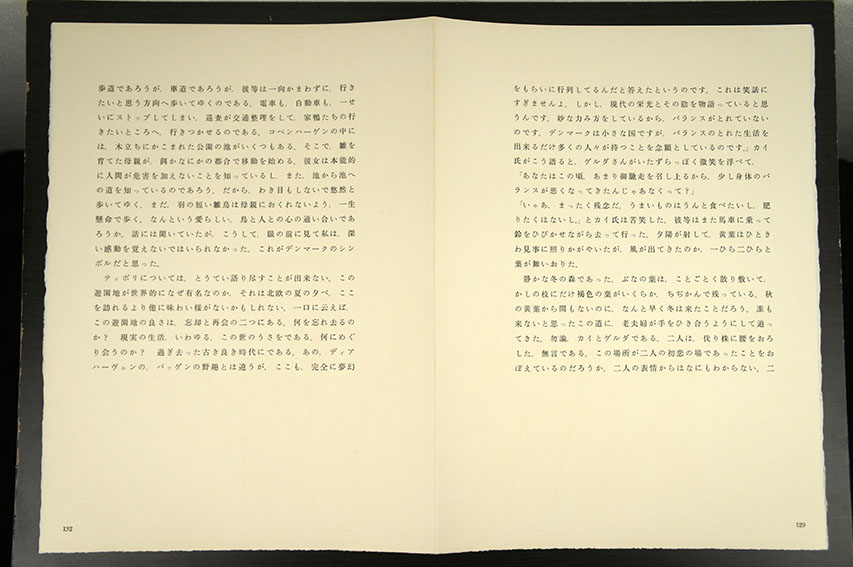 歩道であろうが，車道であろうが，彼等は一向かまわずに，行き
たいと思う方向へ歩いてゆくのである。電車も，自動車も，一せ
いにストップしてしまい，巡査が交通整理をして，家鴨たちの行
きたいところへ，行きつかせるのである。コペンハーゲンの中に
は，木立ちにかこまれた公園の池がいくつもある。そこで，雛を
育てた母親が，何かなにかの都合で移動を始める。彼女は本能的
に人間が危害を加えないことを知っているし，また，池から池へ
の道を知っているのであろう。だから，わき目もしないで悠然と
歩いてゆく。まだ，羽の短い雛鳥は母親におくれないよう，一生
懸命で歩く。なんという愛らしい，鳥と人との心の通い合いであ
ろうか。話には聞いていたが，こうして，眼の前に見て私は，深
い感動を覚えないではいられなかった。これがデンマークのシン
ボルだと思った。
ティボリについては，とうてい語り尽すことが出来ない。この
遊園地が世界的になぜ有名なのか，それは北欧の夏の夕べ，ここ
を訪れるより他に味わい様がないかもしれない。一口に云えば，
この遊園地の良さは，忘却と再会の二つにある。何を忘れ去るの
か？　現実の生活，いわゆる，この世のうさをである。何にめぐ
り会うのか？　過ぎ去った古き良き時代にである。あの，ディア
ハーヴェンの，バッゲンの野趣とは違うが，ここも，完全に夢幻
132
をもらいに行列してるんだと答えたというのです。これは笑話に
すぎませんよ。しかし，現代の栄光とその陰を物語っていると思
うんです。妙な力み方をしているから，バランスがとれていない
のです。デンマークは小さな国ですが，バランスのとれた生活を
出来るだけ多くの人々が持つことを念願としているのです。」カイ
氏がこう語ると，ゲルダさんがいたずらっぽく微笑を浮べて，
「あなたはこの頃，あまり御馳走を召し上るから，少し身体のバ
ランスが悪くなってきたんじゃあなくって？」
「いゃあ，まったく残念だ。うまいものはうんと食べたいし，肥
りたくはないし。」とカイ氏は苦笑した。彼等はまた馬車に乗って
鈴をひびかせながら去って行った。夕陽が射して，黄葉はひとき
わ見事に照りかがやいたが，風が出てきたのか，一ひら二ひらと
葉が舞いおりた。
静かな冬の森であった。ぶなの葉は，ことごとく散り敷いて，
かしの枝にだけ褐色の葉がいくらか，ちぢかんで残っている。秋
の黄葉から間もないのに，なんと早く冬は来たことだろう。誰も
来ないと思ったこの道に，老夫婦が手をひき合うようにして辿っ
てきた。勿論，カイとゲルダである。二人は，伐り株に腰をおろ
した。無言である。この場所が二人の初恋の場であったことをお
ぼえているのだろうか，二人の表情からはなにもわからない。二
129